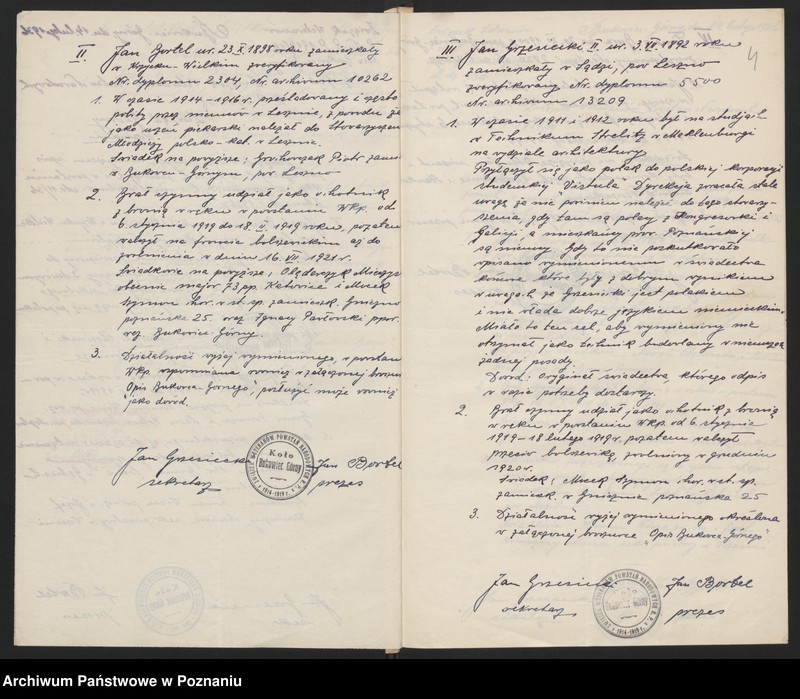 II. Jan Bortel ur. 23.X.1898 roku zamieszkały
w Wijewie Wielkim zweryfikowany
Nr. dyplomu 2304, Nr. archiwum 10262
1. W czasie 1914-1916 r. prześladowany i często
przez niemców w Lesznie, z powodu że
jako uczeń piekarski należał do Stowarzyszen
Młodzieży polsko-kat. w Lesznie.
Świadek na powyższe: Piotr zami
w Bukowcu-Górnym, pow. Leszno
2. Brał czynny udział jako ochotnik
z bronią w ręku w powstaniu Wkp. od
6. stycznia 1919 do 18. II. 1919 roku, pozatem
należył na froncie bolszewickim aż do
zwolnienia w dniu 16. VII. 1921 r.
Świadkowie na powyższe:
obecnie major 73 pp. Katowice i Macek
Szymon chor. w st. sp. zamieszk. Gniezno
poznańska 25 oraz Ignacy Pawłowski ppor.
rez. Bukowiec Górny.
3. Działalność wyżej wymienionego, w powstan
Wkp. wspomniana również w załączonej broszu
"Opis Bukowca-Górnego", posłużyć może również
jako dowód.
Jan Grzesiecki
sekretarz
Koło
Bukowiec Górny
1914-1919 r.
Jan Bortel
prezes
4
III Jan Grzesiecki II. ur. 3.VII.1892 roku
zamieszkały w Łodzi, pow. Leszno
zweryfikowany Nr. dyplomu 5500
Nr. archiwum 13209.
1. W czasie 1911 i 1912 roku był na studjach
w Technikum Strelitz w Meklenburgi
na wydziale architektury
Przyłączył się jako polak do polskiej korporacji
studenckiej "Vistula" Dyrekcja zwracała stale
uwagę że nie powinien należeć do tego stowarzy-
szenia, gdy tam są polacy z Kongresówki i
Galicji, a mieszkańcy prow. Poznańskiej
są niemcy. Gdy to nie poskutkowało
wpisano wymienionemu w świadectwa
końcowe które były z dobrym wynikiem
w uwagach że Grzesiecki jest polakiem
i nie włada dobrze językiem niemieckim.
Miało to ten cel, aby wymieniony nie
otrzymał jako technik budowlany w niemczech
żadnej posady.
Dowód: oryginał świadectwa, którego odpis
w razie potrzeby dostarczy.
2. Brał czynny udział jako ochotnik z bronią
w ręku w powstaniu Wkp. od 6. stycznia
1919-18 lutego 1919 r. pozatem należył
przeciw bolszewiką, zwolniony w grudniu
1920 r.
Świadek: Macek Szymon chor. w st. sp.
zamieszk. w Gnieźnie poznańska 25
3. Działalność wyżej wymienionego określona
w załączonej broszurce "Opis Bukowca-Górnego"
Jan Grzesiecki
sekretarz
Jan Bortel
prezes
Archiwum Państwowe w Poznaniu